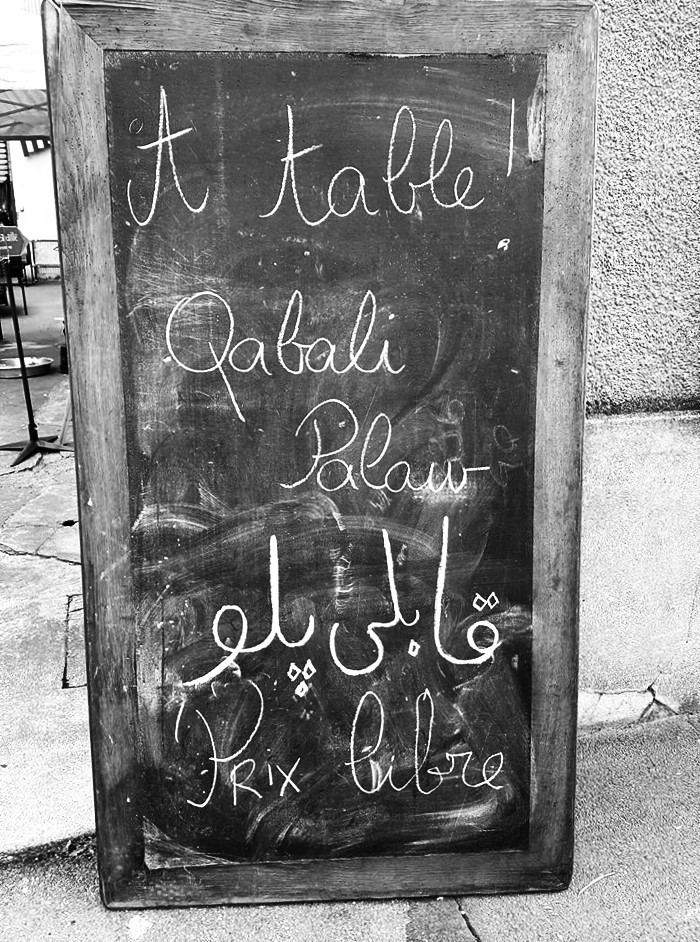 A table !
Qabali
Palaw
قابلی پلو
Prix libre